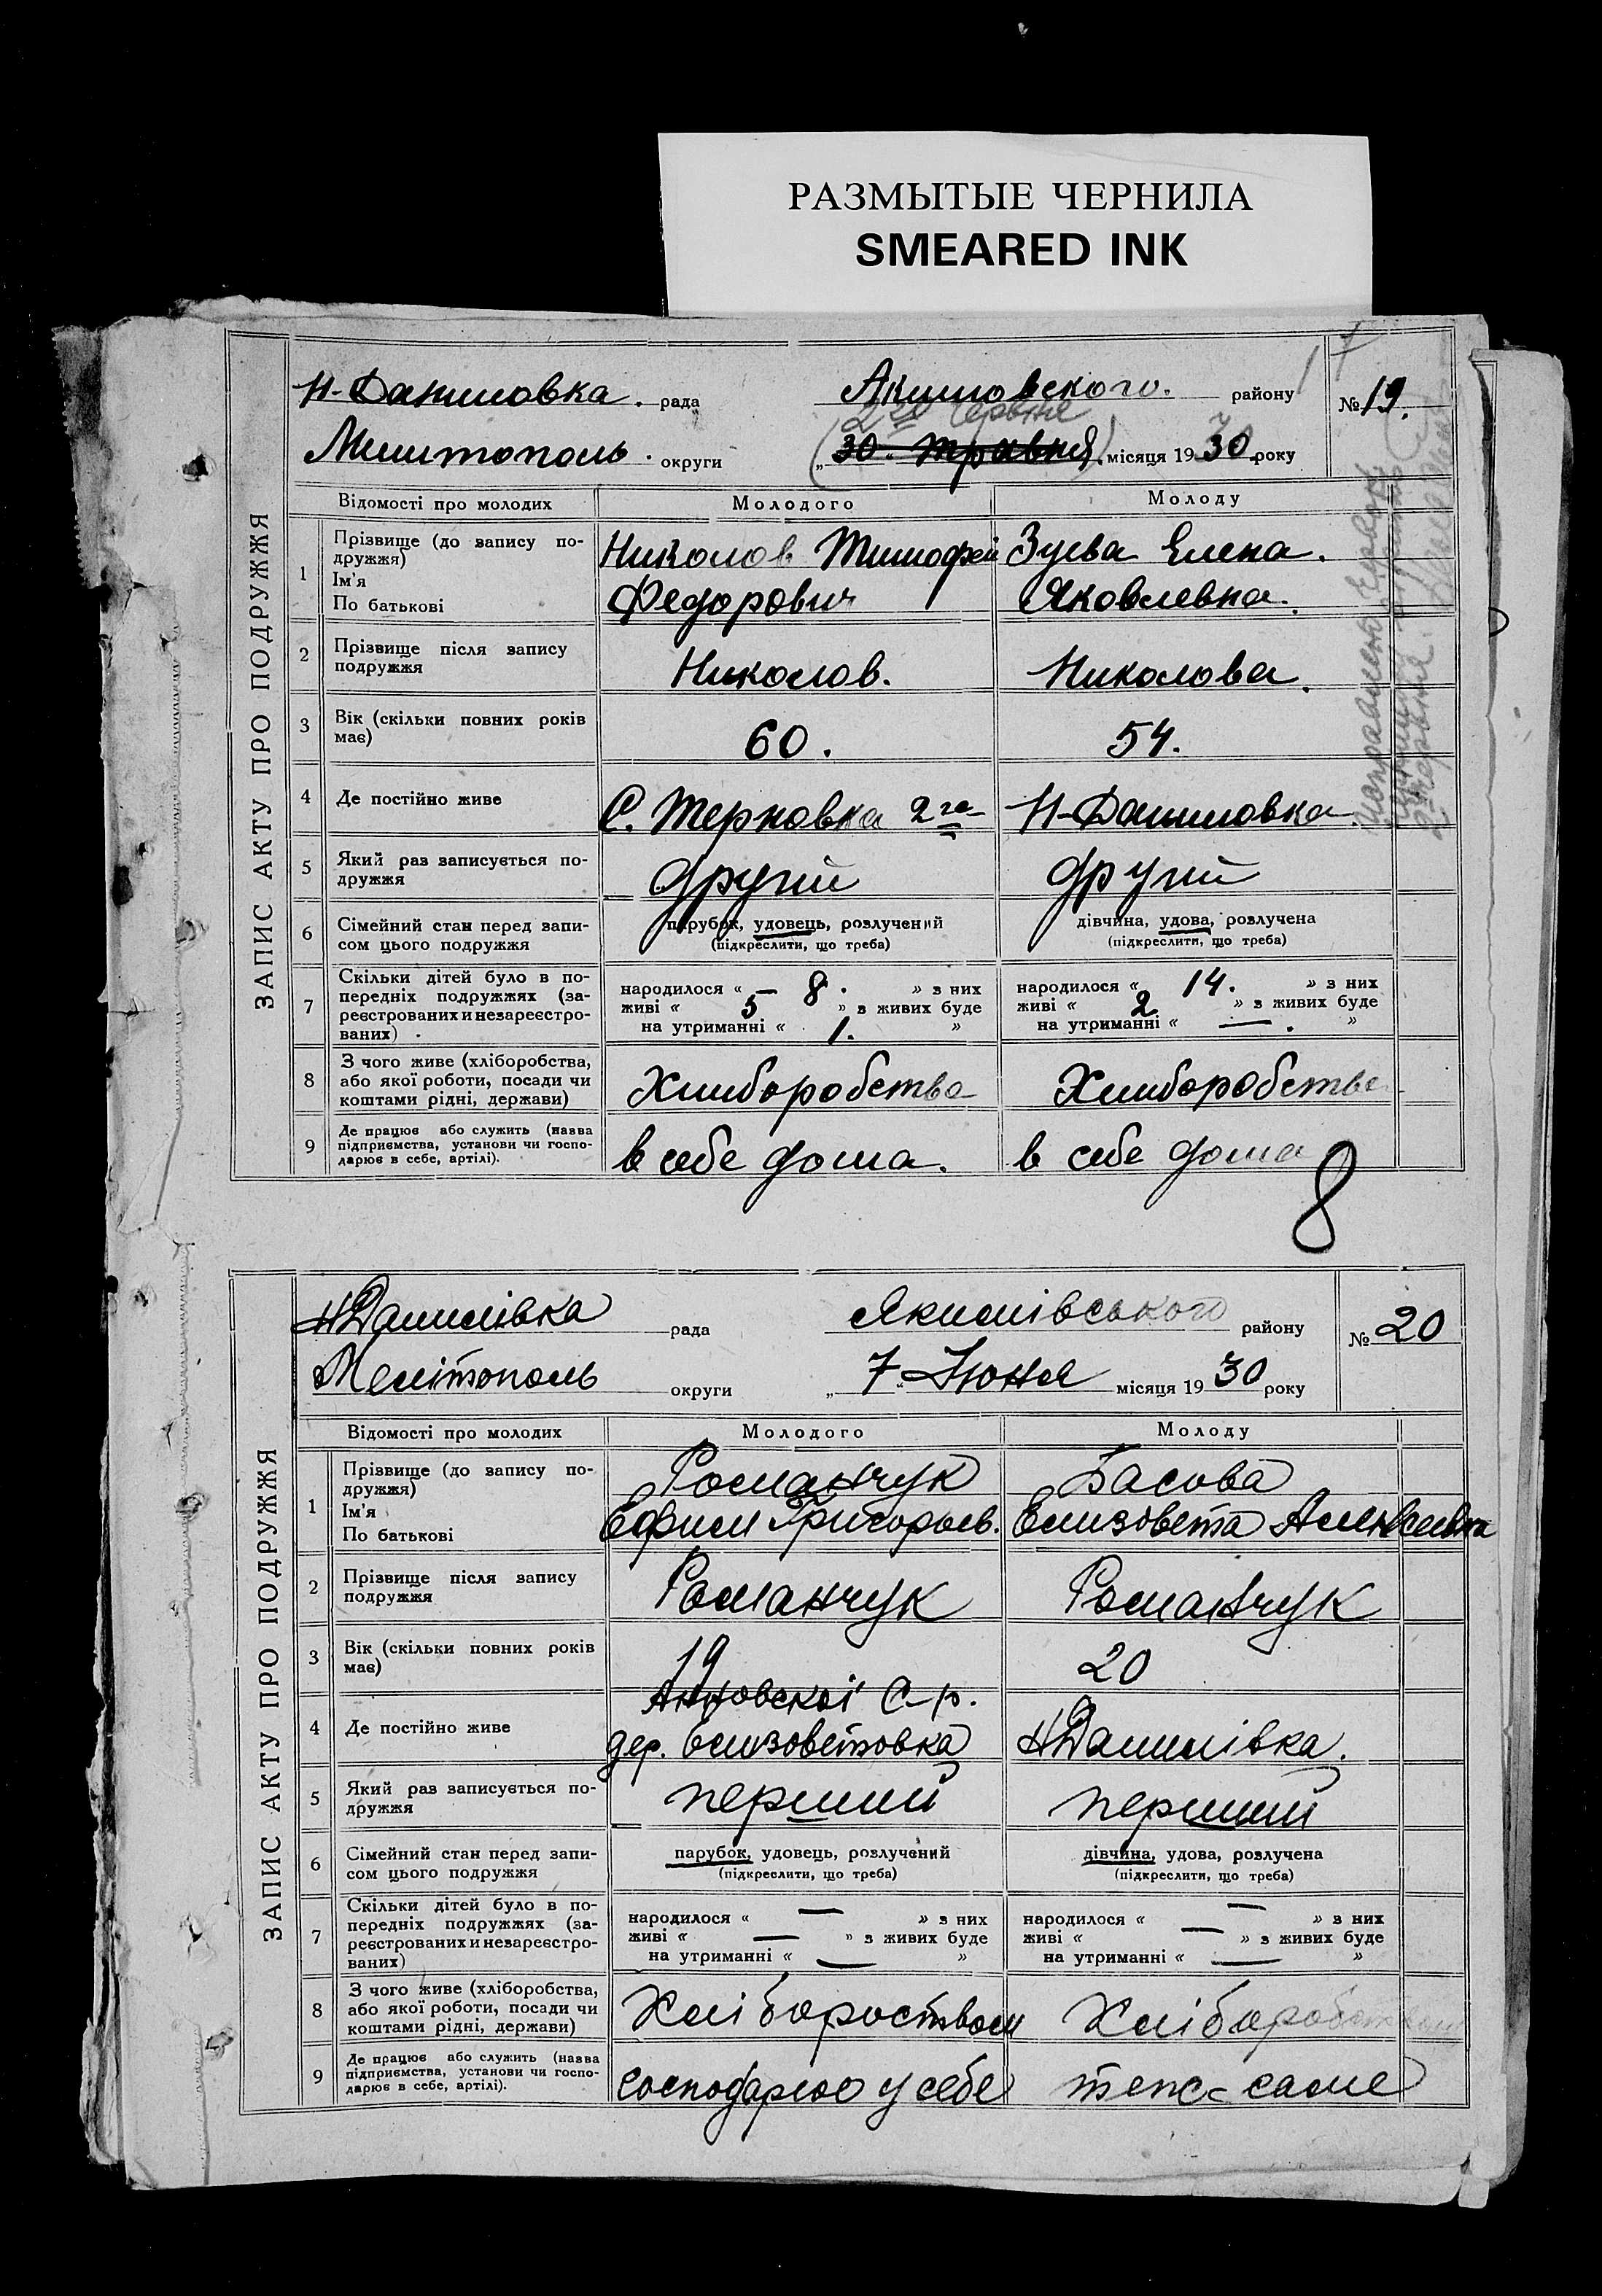 РАЗМЫТЫЕ ЧЕРНИЛА
SMEARED INK
ЗАПИС АКТУ ПРО ПОДРУЖЖЯ
Н-Даниловка. рада Акимовского. району № 19.
2го Червня
Милитополь. округи „30 травня" місяця 1930 року
Відомості про молодих Молодого Молоду
1 Прізвище (до запису подружжя) Ім'я По батькові
Николов Тимофей Федорович
Зуева Елена Яковлевна.
2 Прізвище після запису подружжя Николов. Николова.
3 Вік (скільки повних років має) 60. 54.
4 Де постійно живе С. Терновка 2га Н-Даниловка.
5 Який раз записується подружжя другий другий
6 Сімейний стан перед записом цього подружжя
парубок, удовець, розлучений
(підкреслити, що треба)
дівчина, удова, розлучена
(підкреслити, що треба)
7 Скільки дітей було в попередніх подружжях (зареєстрованих и незареєстрованих)
народилося « 8. » з них
живі « 5 » з живих буде
на утриманні « 1. »
народилося « 14. » з них
живі « 2 » з живих буде
на утриманні « — . »
8 З чого живе (хліборобства, або якої роботи, посади чи коштами рідні, держави) Хлиборобства Хлиборобства
9 Де працює або служить (назва підприємства, установи чи господарює в себе, артілі). в себе дома. в себе дома
8
ЗАПИС АКТУ ПРО ПОДРУЖЖЯ
НДанилівка рада Якимівського району № 20
Мелітополь округи „7" Июня місяця 1930 року
Відомості про молодих Молодого Молоду
1 Прізвище (до запису подружжя) Ім'я По батькові
Романчук
Ефим Григорьев.
Басова
Елизовета Алексеевна
2 Прізвище після запису подружжя Романчук Романчук
3 Вік (скільки повних років має) 19 20
4 Де постійно живе
Анновскої С-р.
дер. Елизоветовка
НДанилівка.
5 Який раз записується подружжя перший перший
6 Сімейний стан перед записом цього подружжя
парубок, удовець, розлучений
(підкреслити, що треба)
дівчина, удова, розлучена
(підкреслити, що треба)
7 Скільки дітей було в попередніх подружжях (зареєстрованих и незареєстрованих)
народилося « — » з них
живі « — » з живих буде
на утриманні « — »
народилося « — » з них
живі « — » з живих буде
на утриманні « — »
8 З чого живе (хліборобства, або якої роботи, посади чи коштами рідні, держави) Хлібороством Хліборобством
9 Де працює або служить (назва підприємства, установи чи господарює в себе, артілі). господарює у себе теж-саме